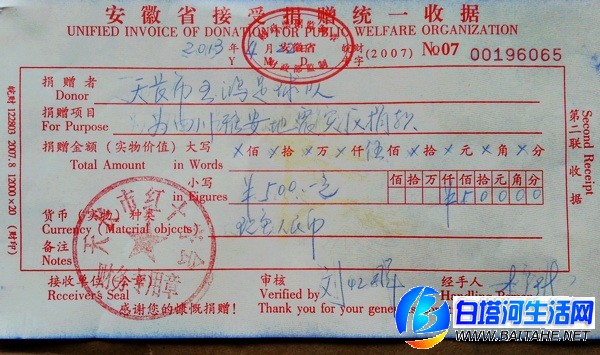 安徽省接受捐赠统一收据
UNIFIED INVOICE OF DONATION FOR PUBLIC WELFARE ORGANIZATION
2013年4月 日 皖财
Y M D 字(2007) №07 00196065
捐赠者
Donor 天长市玉鸿足球队
捐赠项目
For Purpose 为四川雅安地震灾区捐款
捐赠金额(实物价值)大写 ×佰×拾×万×仟伍佰×拾×元×角×分
Total Amount in Words
小写 佰拾万仟佰拾元角分
in Figures ¥500.-元 ¥50000
货币(实物)种类
Currency (Material objects) 现金人民币
备注
Notes
接收单位(公章) 审核 经手人
Receiver's Seal Verified by 刘 Handling
感谢您的慷慨捐赠! Thank you for your
皖财 122803 2007.8 12000×20
第二联收据
Second Receipt
天长市红十字会
财务专用章
白塔河生活网
WWW.BAITAHE.NET